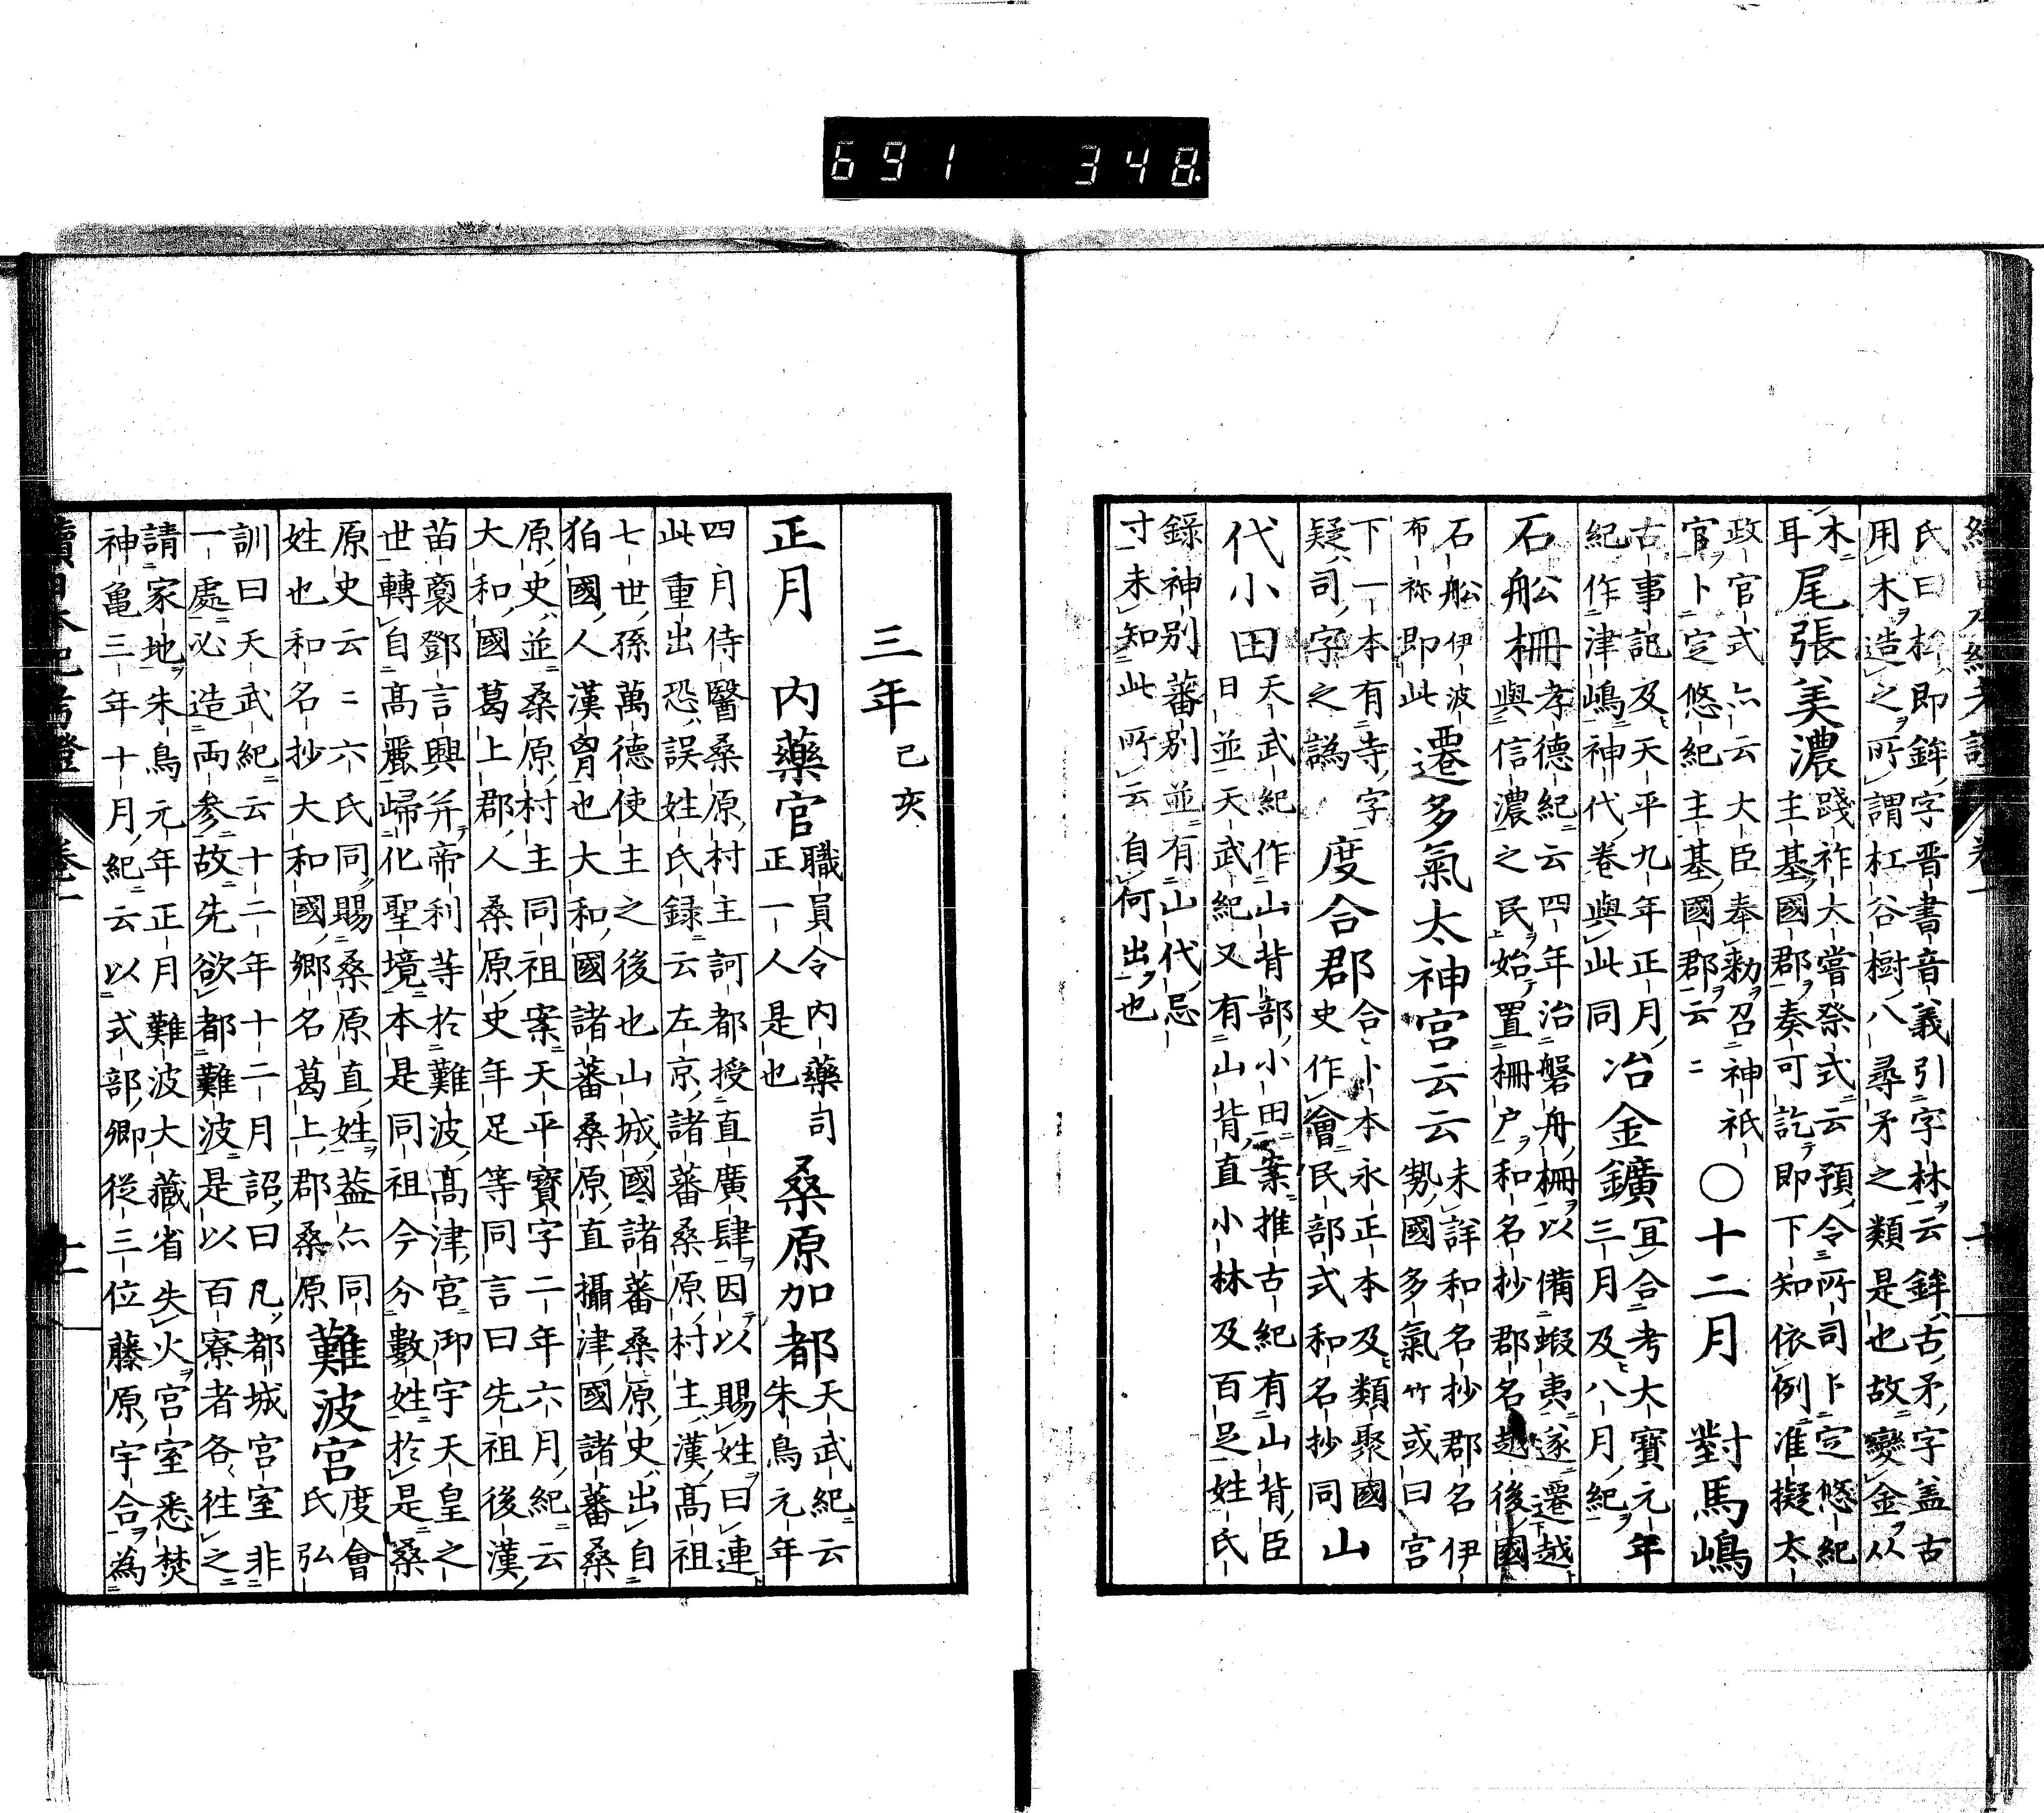 691 348
續日本紀考證 卷一 十
氏曰松即鉾字晋書音義引字林云鉾古矛字盖古
用木造之所謂杠谷樹八尋矛之類是也故變金从
木
耳
尾張美濃
踐祚大嘗祭式云預令所司卜定悠紀
主基國郡奏可訖即下知依例准擬太
政官式亦云大臣奉勅召神祇
官卜定悠紀主基國郡云〻
○十二月 對馬嶋
古事記及天平九年正月
紀作津嶋神代卷與此同
冶金鑛
冝合考大寶元年
三月及八月紀
石舩柵
孝德紀云四年治磐舟柵以備蝦夷遂遷越
與信濃之民始置柵户和名抄郡名越後國
石舩伊波
布祢即此
遷多氣太神宮云云
未詳和名抄郡名伊
勢國多氣竹或曰宮
下一本有寺字
疑司字之譌
度合郡
合卜本永正本及類聚國
史作會民部式和名抄同
山
代小田
天武紀作山背部小田案推古紀有山背臣
日並天武紀又有山背直小林及百足姓氏
錄神别蕃别並有山代忌
寸未知此所云自何出也
三年
己亥
正月 内藥官
職員令内藥司
正一人是也
桑原加都
天武紀云
朱鳥元年
四月侍醫桑原村主訶都授直廣肆因以賜姓曰連
此重出恐誤姓氏録云左京諸蕃桑原村主漢髙祖
七世孫萬德使主之後也山城國諸蕃桑原史出自
狛國人漢胷也大和國諸蕃桑原直攝津國諸蕃桑
原史並桑原村主同祖案天平寶字二年六月紀云
大和國葛上郡人桑原史年足等同言曰先祖後漢
苗裔鄧言興并帝利等於難波髙津宮御宇天皇之
世轉自髙麗歸化聖境本是同祖今分數姓於是桑
原史云〻六氏同賜桑原直姓葢亦同
姓也和名抄大和國郷名葛上郡桑原
難波宮
度會
氏弘
訓曰天武紀云十二年十二月詔曰凡都城宮室非
一處必造両参故先欲都難波是以百寮者各往之
請家地朱鳥元年正月難波大藏省失火宮室悉焚
神亀三年十月紀云以式部卿從三位藤原宇合為
續日本紀考證 卷一 十一